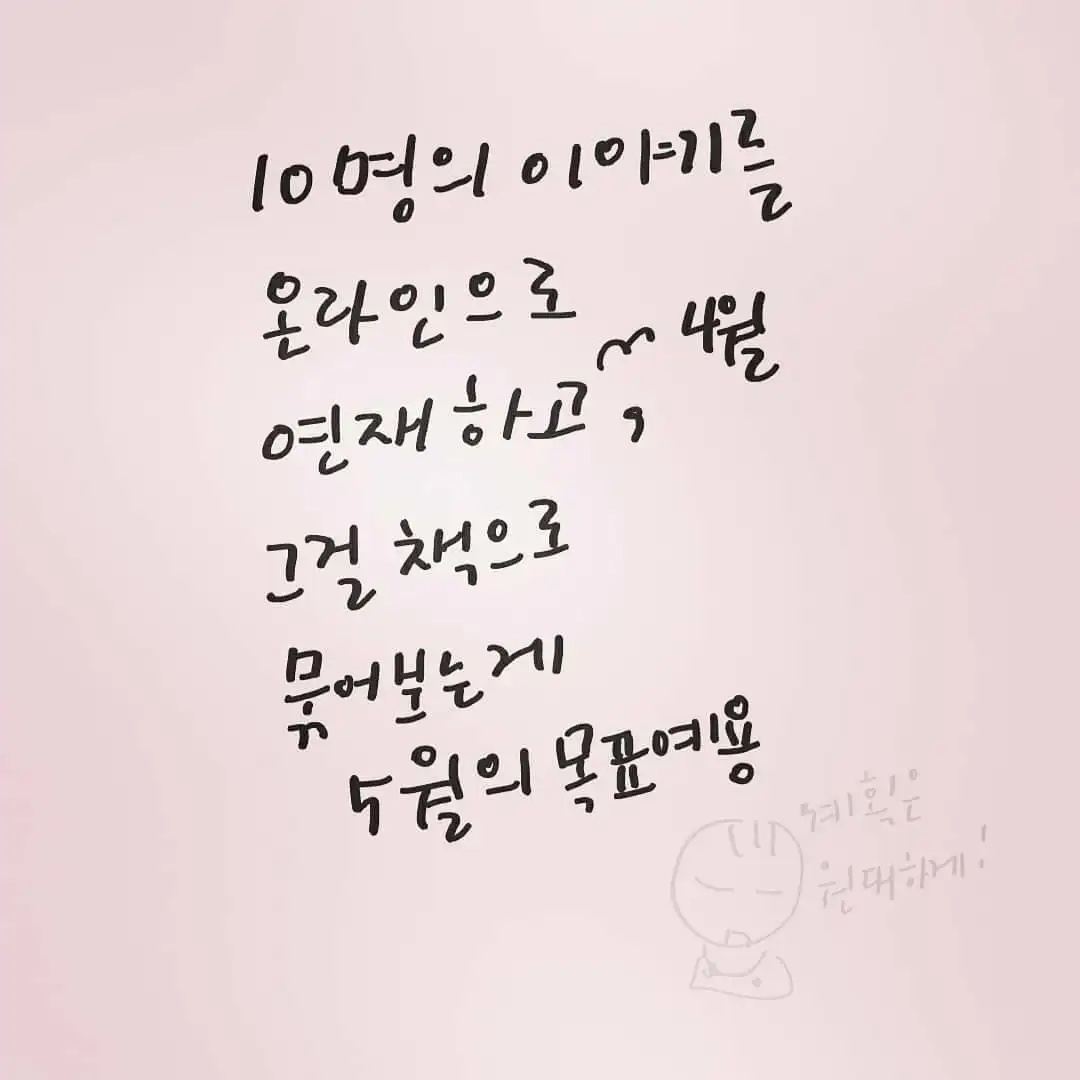 10명의 이야기를
온라인으로
연재하고, 4월
그걸 책으로
묶어보는게
5월의 목표예용
계획은
원대하게!